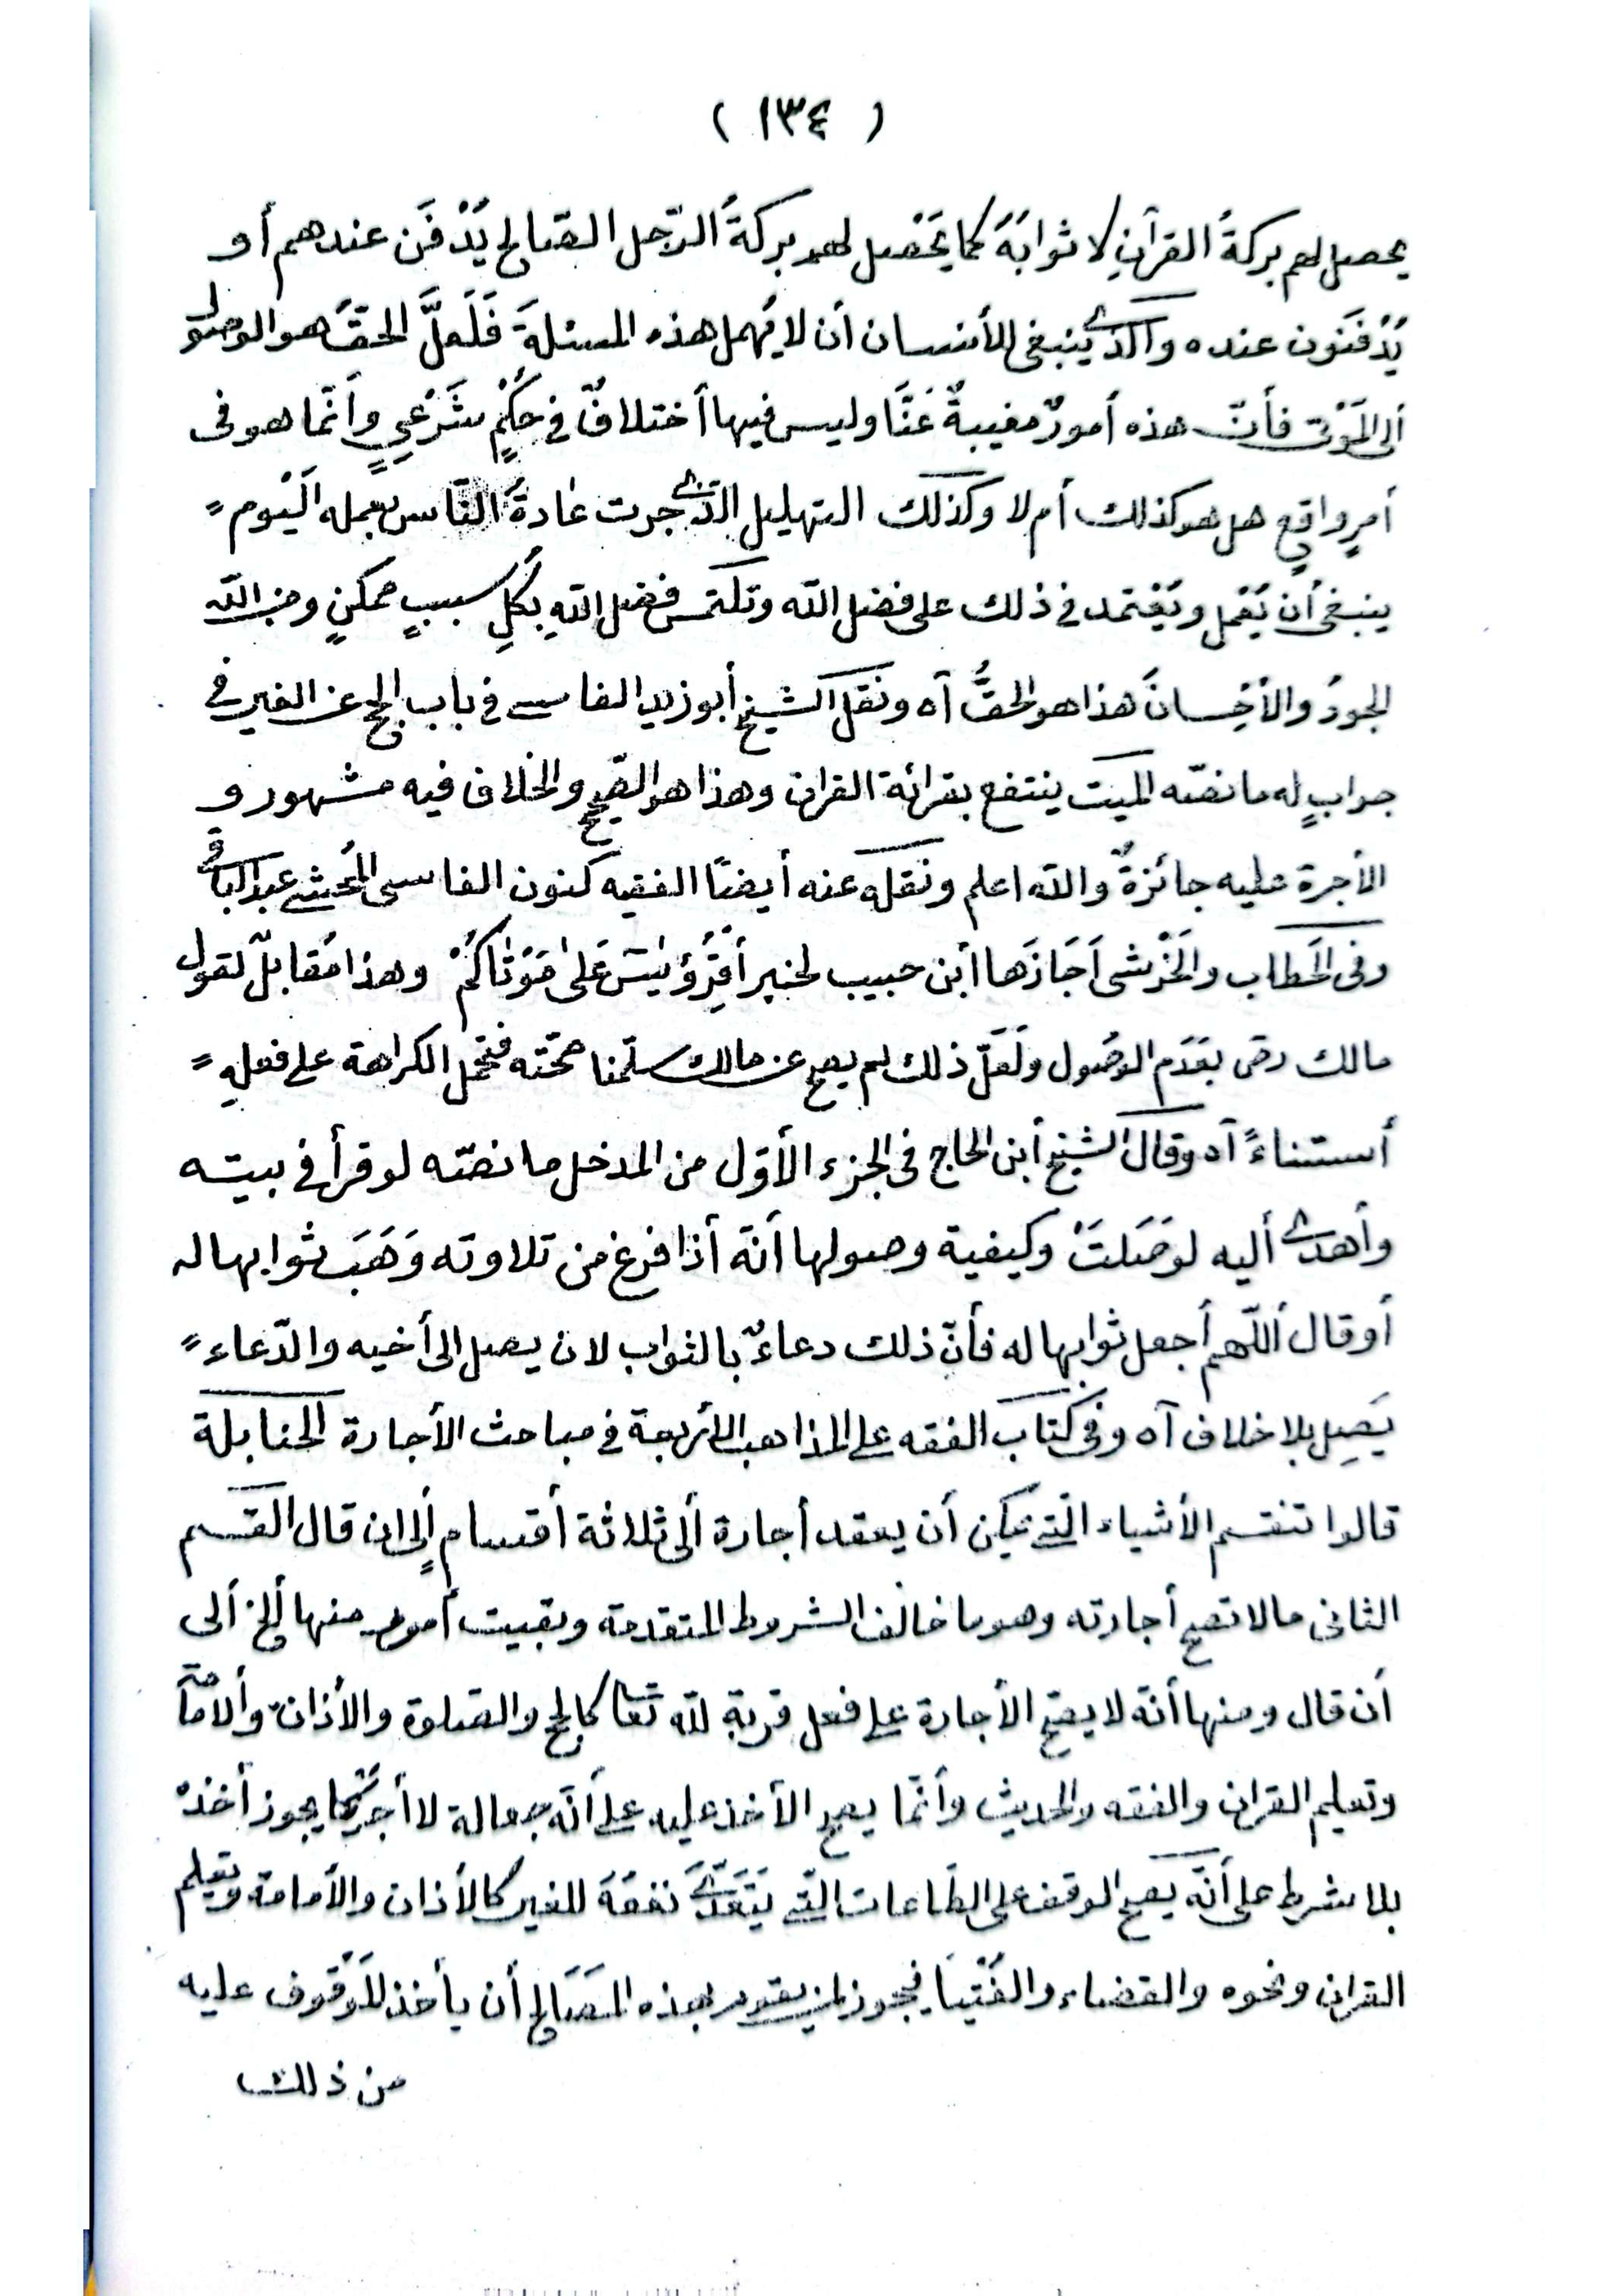 ( ١٣٤ )
يحصل لهم بركةُ القرآنِ لا ثوابَهُ كما يَحْصل لهم بركةُ الرّجل الصّالح يُدْفَن عندهم أو
يُدْفَنون عنده والّذى ينبغى للأنسان أن لا يُهمل هذه المسئلةَ فَلَعلَّ الحقَّ هو الوصول
ألى المَوْتى فأنّ هذه أمورٌ مغيبةٌ عَنَّا وليس فيها أختلافٌ فى حُكْمٍ شَرْعيٍ وأنّما هو فى
أمرٍ واقعٍ هل هو كذلك أم لا وكذلك التهليل الّذى جرت عادةُ النّاس بعمله اليَوم =
ينبغى أن يُعْمل ويُعْتمد فى ذلك على فضل الله وتلتمس فضل اللهِ بكُلِ سببٍ ممكنٍ ومن الله
الجودُ والأحْسانُ هذا هو الحقُّ آه ونقل الشيخ أبو زيد الفاسى فى باب الحج عن الغير فى
جوابٍ له ما نصّه الميت ينتفع بقرائة القران وهذا هو الصّحيح والخلاف فيه مشهور و
الأجرة عليه جائزةٌ والله اعلم ونقله عنه أيضًا الفقيه كنون الفاسى المُحشى عبد الباقى
وفى الحَطاب والخَرْشى اَجَازَها أبن حبيب لخبر أقْرَؤُ يٰسَ عَلىٰ مَوْتٰاكُمْ وهذا مُقابلٌ لقول
مالك رض بعَدَم الوصُول ولَعَلّ ذلك لم يصح عن مالك سلّمنا صحّته فتحمل الكراهة على فعلهِ =
أستناءً آه وقال الشيخ أبن الحاج فى الجزء الأوّل من المدخل ما نصّه لو قرأ فى بيته
وأهدى أليه لوصَلَتْ وكيفية وصولها أنّه أذا فرغ من تلاوته وَهَبَ ثوابها له
أو قال أللّهم أجعل ثوابها له فأنّ ذلك دعاءٌ بالثواب لان يصل الى أخيه والدّعاء =
يَصِل بلا خلاف آه وفى كتاب الفقه على المذاهب الأربعة فى مباحث الأجارة الحنابلة
قالوا تنقسم الأشياء الّتى يمكن أن يعقد أجارة ألى ثلاثة أقسام ألى ان قال القسم
الثانى ما لا تصح أجارته وهو ما خالف الشروط المتقدمة وبقيت أمور منها ألخ ألى
أن قال ومنها أنّه لا يصح الأجارة على فعل قربة لله تعا كالحج والصلوة والأذان والأمامة
وتعليم القران والفقه والحديث وأنّما يصح الأخذ عليه على أنّه جعالة لا أجرة كما يجوز أخذهُ
بلا شرط على أنّه يصح الوقف على الطّاعات الّتى يَتَعَدّى نفعُهَ للغير كالأذان والأمامة وتعليم
القران ونحوه والقضاء والفُتْيا فيجوز لمن يقوم بهذه المصَالح أن يأخذ المَوْقُوف عليه
من ذلك